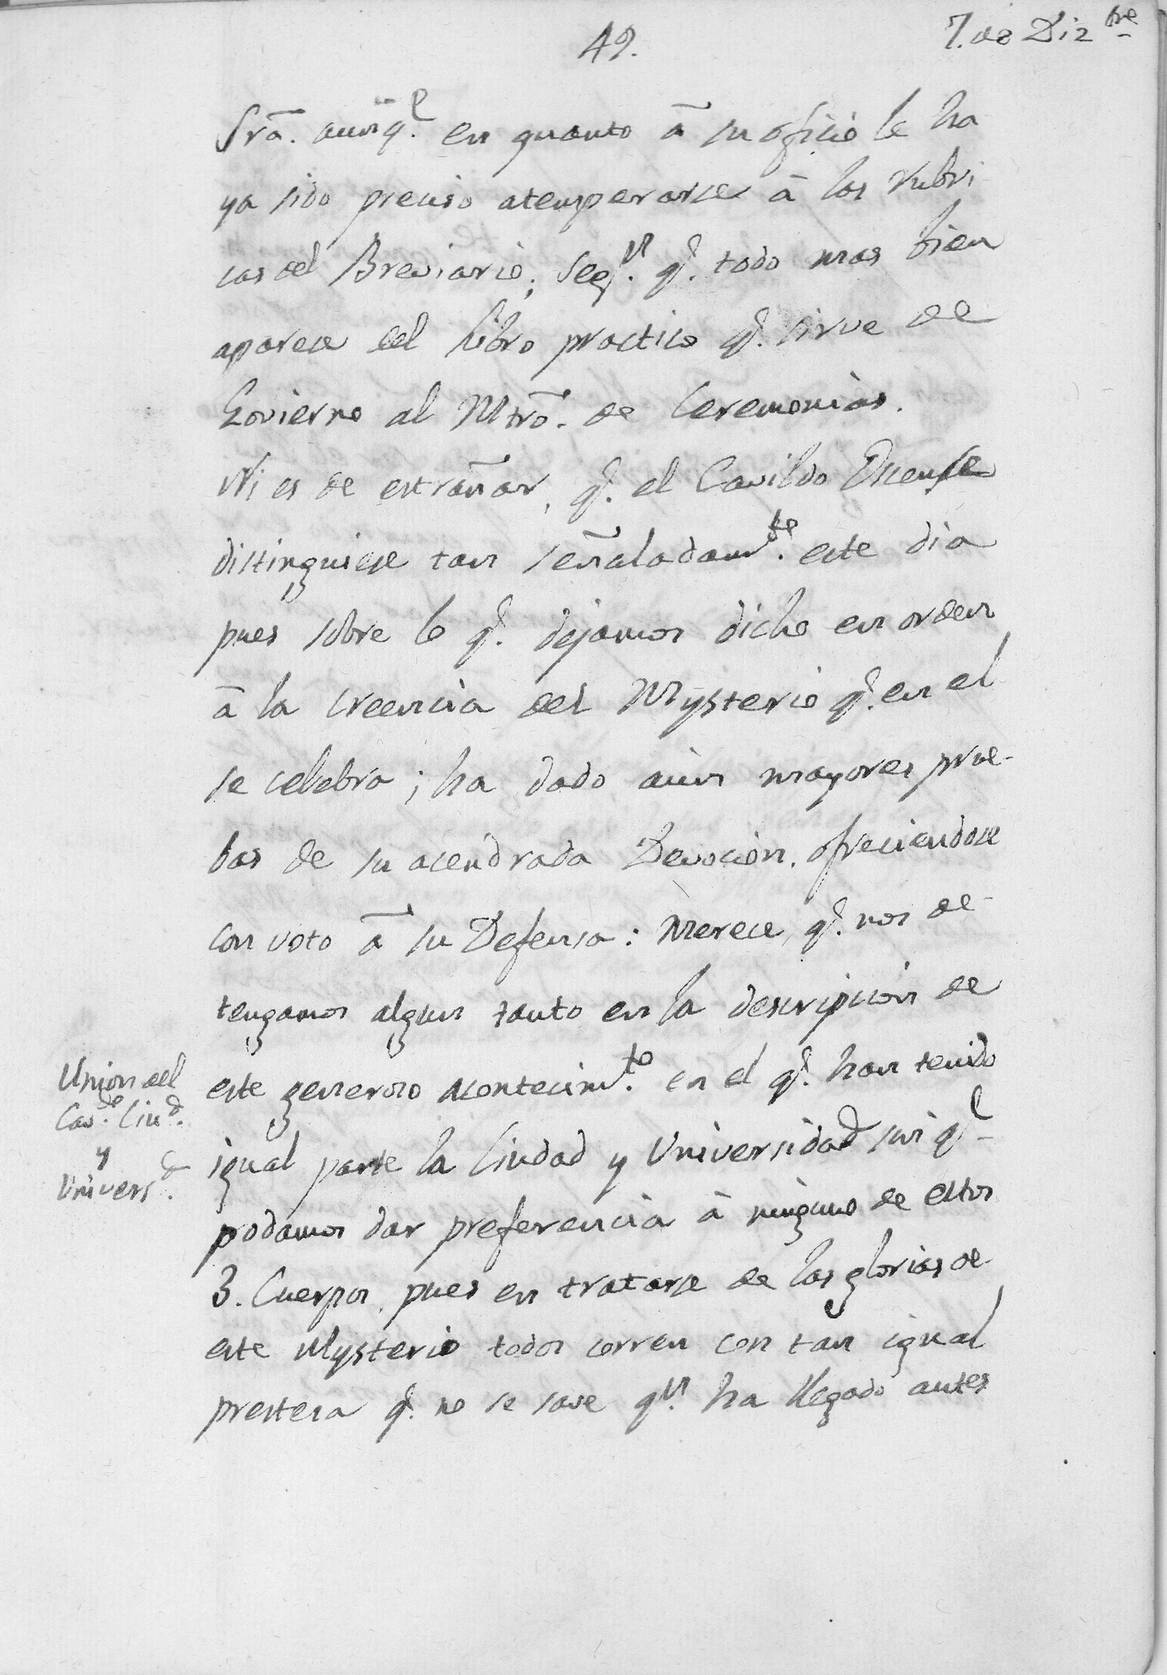 49.
7. de Diz.bre
Srã. aunq.e en quanto â su oficio le ha
ya sido preciso atemperarse â las rubri
cas del Breviario; seg.n q.e todo mas bien
aparece del libro practico q.e sirve de
Govierno al Mtrõ. de Ceremonias.
Ni es de estrañar, q.e el Cavildo Oscense
distinguiese tan señaladam.te este dia
pues sobre lo q.e dejamos dicho en orden
â la creencia del Mysterio q.e en el
se celebra; ha dado aun mayores prue-
bas de su acendrada Devocion, ofreciendose
con voto â su Defensa: Merece, q.e nos de-
tengamos algun tanto en la descripcion de
este generoso acontecim.to en el q.e han tenido
igual parte la Ciudad y Universidad sin q.e
podamos dar preferencia â ninguno de estos
3. Cuerpos, pues en tratarse de las glorias de
este Mysterio todos corren con tan igual
presteza q.e no se save q.n ha llegado antes
Union del
Cav.do Ciu.d
y
Univers.d